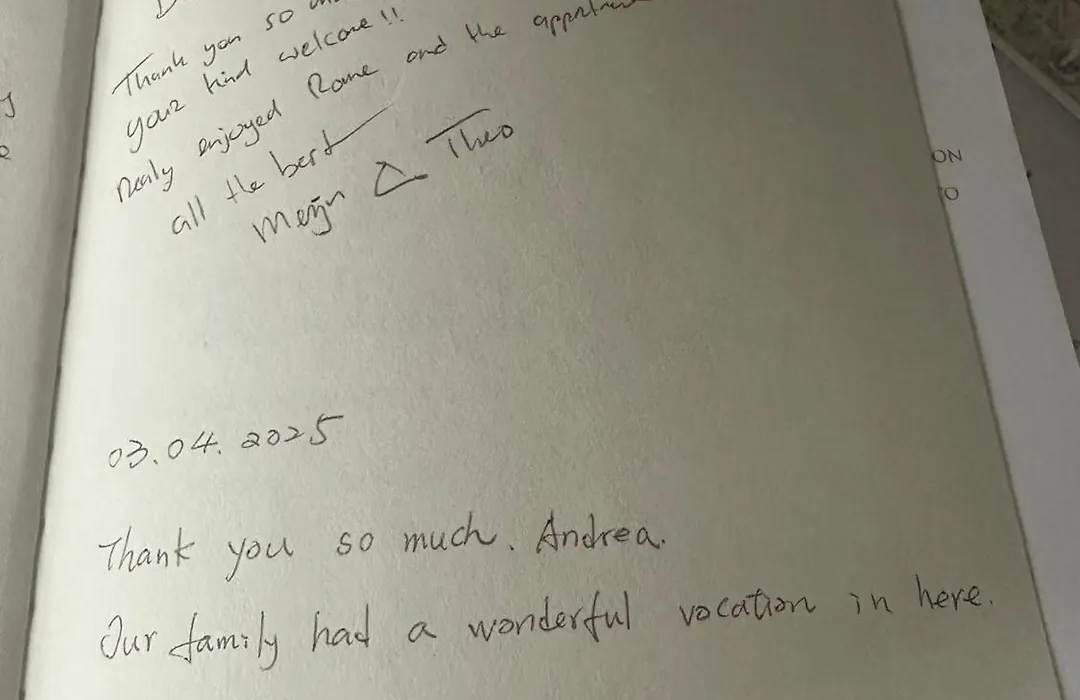 Thank you so
your kind welcome!!
Realy enjoyed Rome and the
all the best
Merijn & Theo
03.04.2025
Thank you so much. Andrea.
Our family had a wonderful vocation in here.
ON